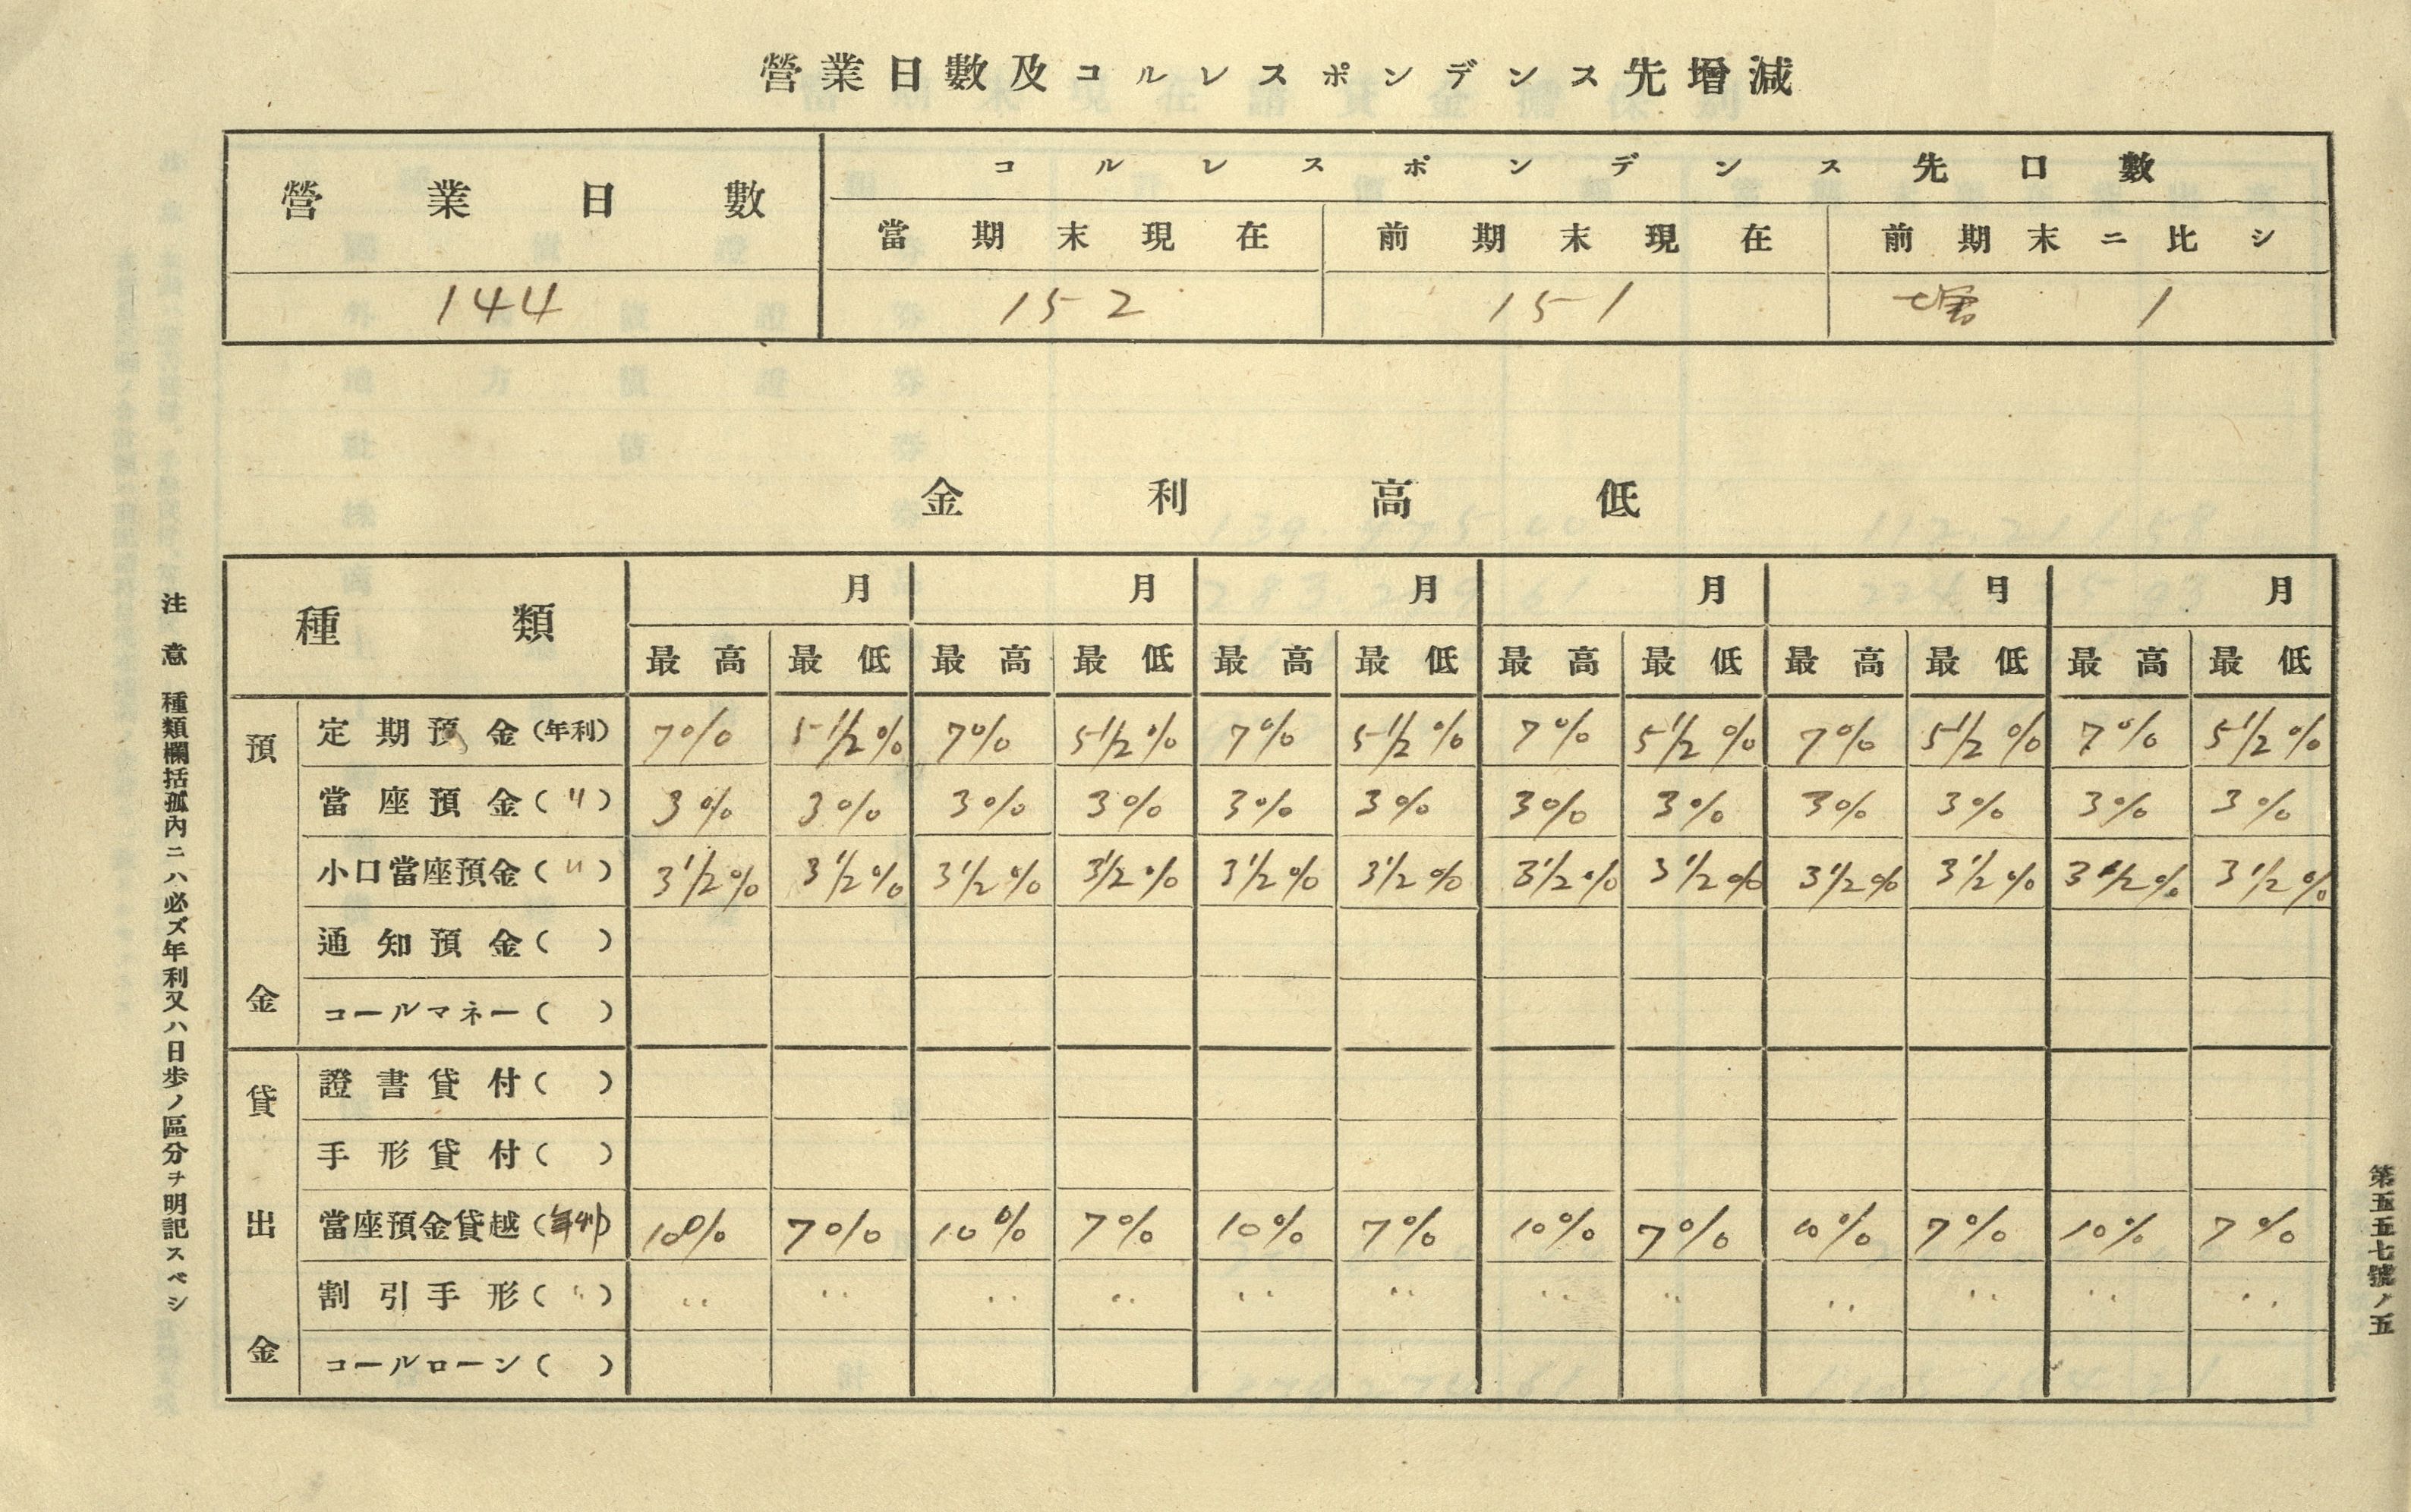 營業日數及コルレスポンデンス先增減
營業日數 コルレスポンデンス先口數
當期末現在 前期末現在 前期末ニ比シ
144 152 151 增 1
金利高低
種類 月 月 月 月 月 月
最高 最低 最高 最低 最高 最低 最高 最低 最高 最低 最高 最低
預金
定期預金(年利) 7% 5 1/2% 7% 5 1/2% 7% 5 1/2% 7% 5 1/2% 7% 5 1/2% 7% 5 1/2%
當座預金(〃) 3% 3% 3% 3% 3% 3% 3% 3% 3% 3% 3% 3%
小口當座預金(〃) 3 1/2% 3 1/2% 3 1/2% 3 1/2% 3 1/2% 3 1/2% 3 1/2% 3 1/2% 3 1/2% 3 1/2% 3 1/2% 3 1/2%
通知預金( )
コールマネー( )
貸出金
證書貸付( )
手形貸付( )
當座預金貸越(年利) 10% 7% 10% 7% 10% 7% 10% 7% 10% 7% 10% 7%
割引手形(〃) 〃 〃 〃 〃 〃 〃 〃 〃 〃 〃 〃 〃
コールローン( )
注意 種類欄括孤內ニハ必ズ年利又ハ日步ノ區分ヲ明記スベシ
第五五七號ノ五